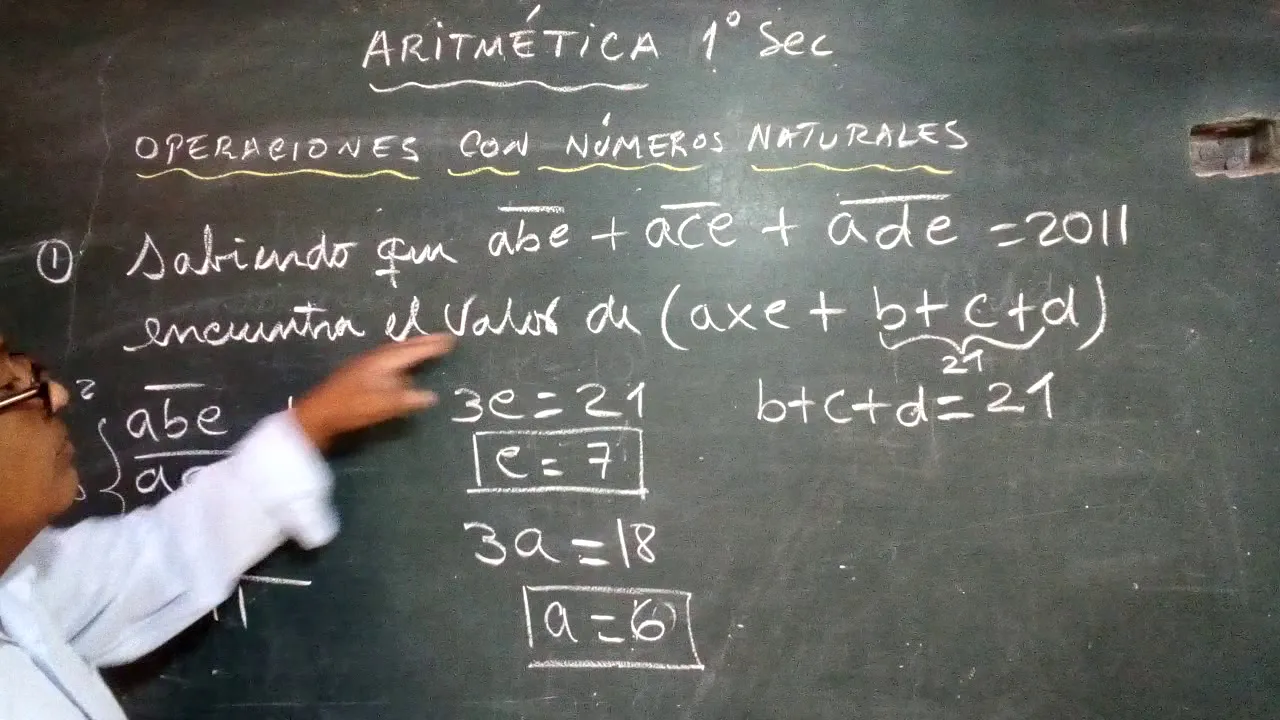 ARITMÉTICA 1° Sec
OPERACIONES CON NÚMEROS NATURALES
① Sabiendo que abe + ace + ade = 2011
encuentra el valor de (axe + b+c+d)
21
2
abe
3e = 21
b+c+d = 21
e = 7
3a = 18
a = 6